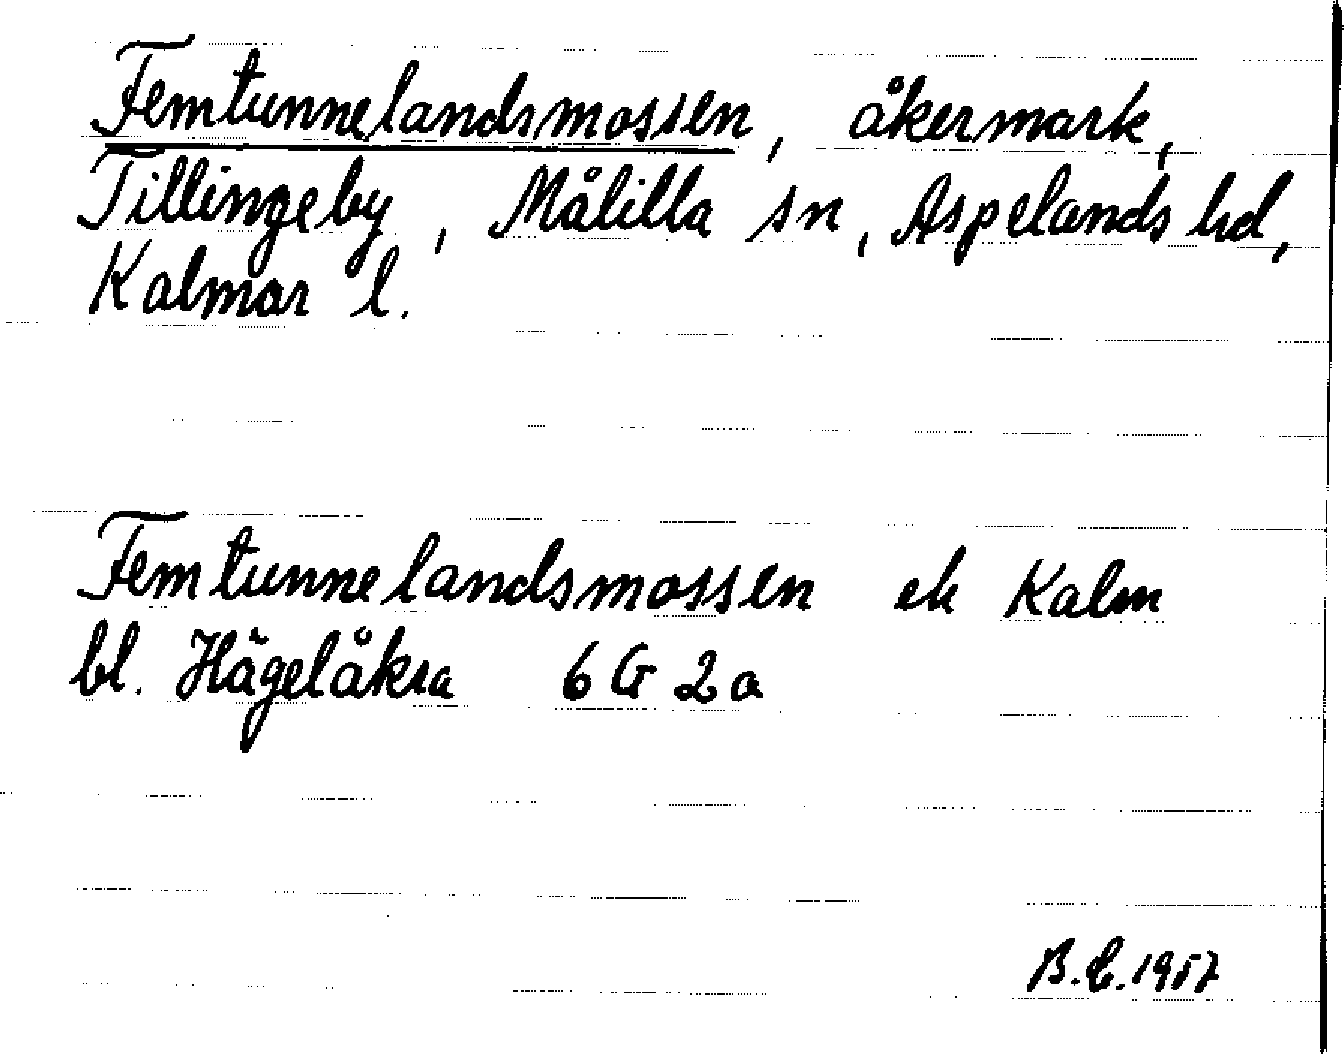 Femtunnelandsmossen, åkermark,
Tillingeby, Målilla sn, Aspelands hd,
Kalmar l.
Femtunnelandsmossen ek Kalm
bl. Hägelåkra 6G 2a
B.E. 1957